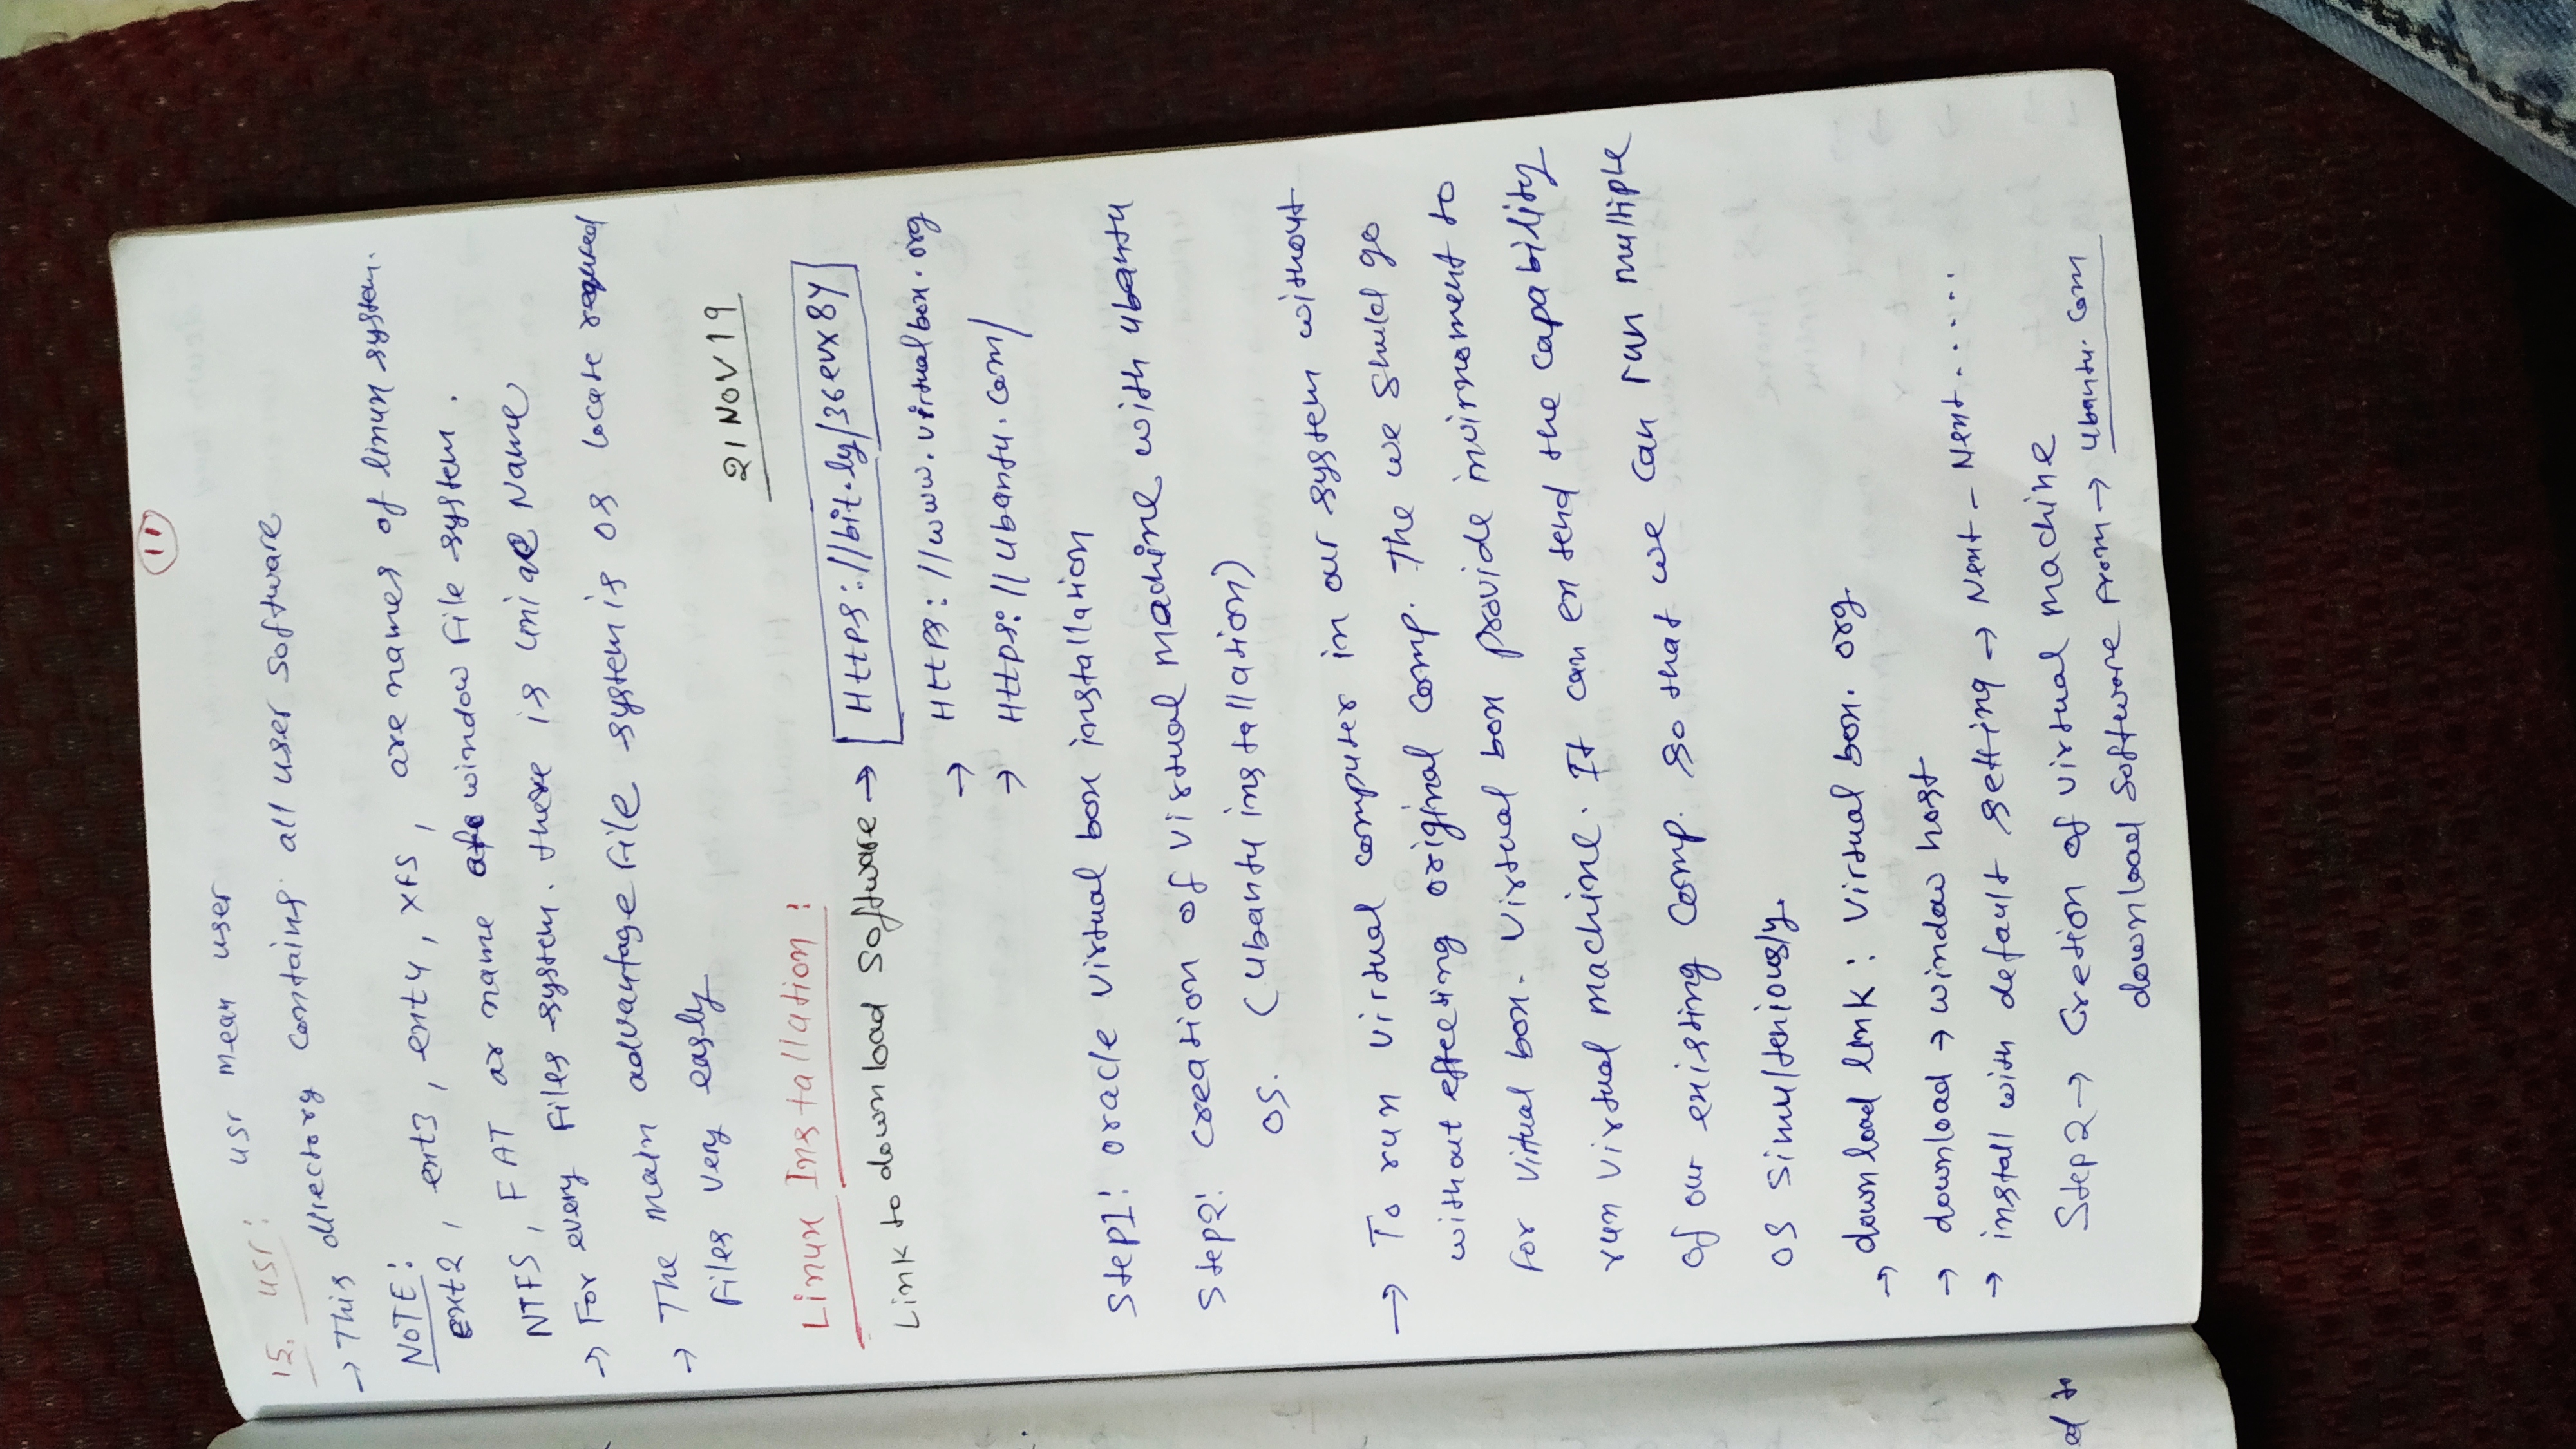 11
15. usr: usr mean user
→ This directory contains all user software
NOTE:
ext2, ext3, ext4, XFS, are names of linux system.
NTFS, FAT ar name window File system.
→ For every Files system. there is Name
→ The main advantage File system is OS locate requred
Files very easly
21 NOV 19
Linux Installation:
Link to download Software → Https://bit.ly/36evx8Y
→ Https://www.virtualbox.org
→ Https://ubantu.com/
Step1: oracle virtual box installation
Step2: creation of virtual machine with ubantu
OS. (ubantu installation)
→ To run virtual computer in our system without
without effecting original comp. The we shuld go
For virtual box. Virtual box provide invirnoment to
run virtual machine. It can extend the capability
of our existing comp. so that we can run multiple
OS simulteniously.
→ download link: Virtual box. org
→ download → window host
→ install with default setting → Next - Next ......
Step2 → Cretion of virtual machine
download software From → ubantu. com
ed to